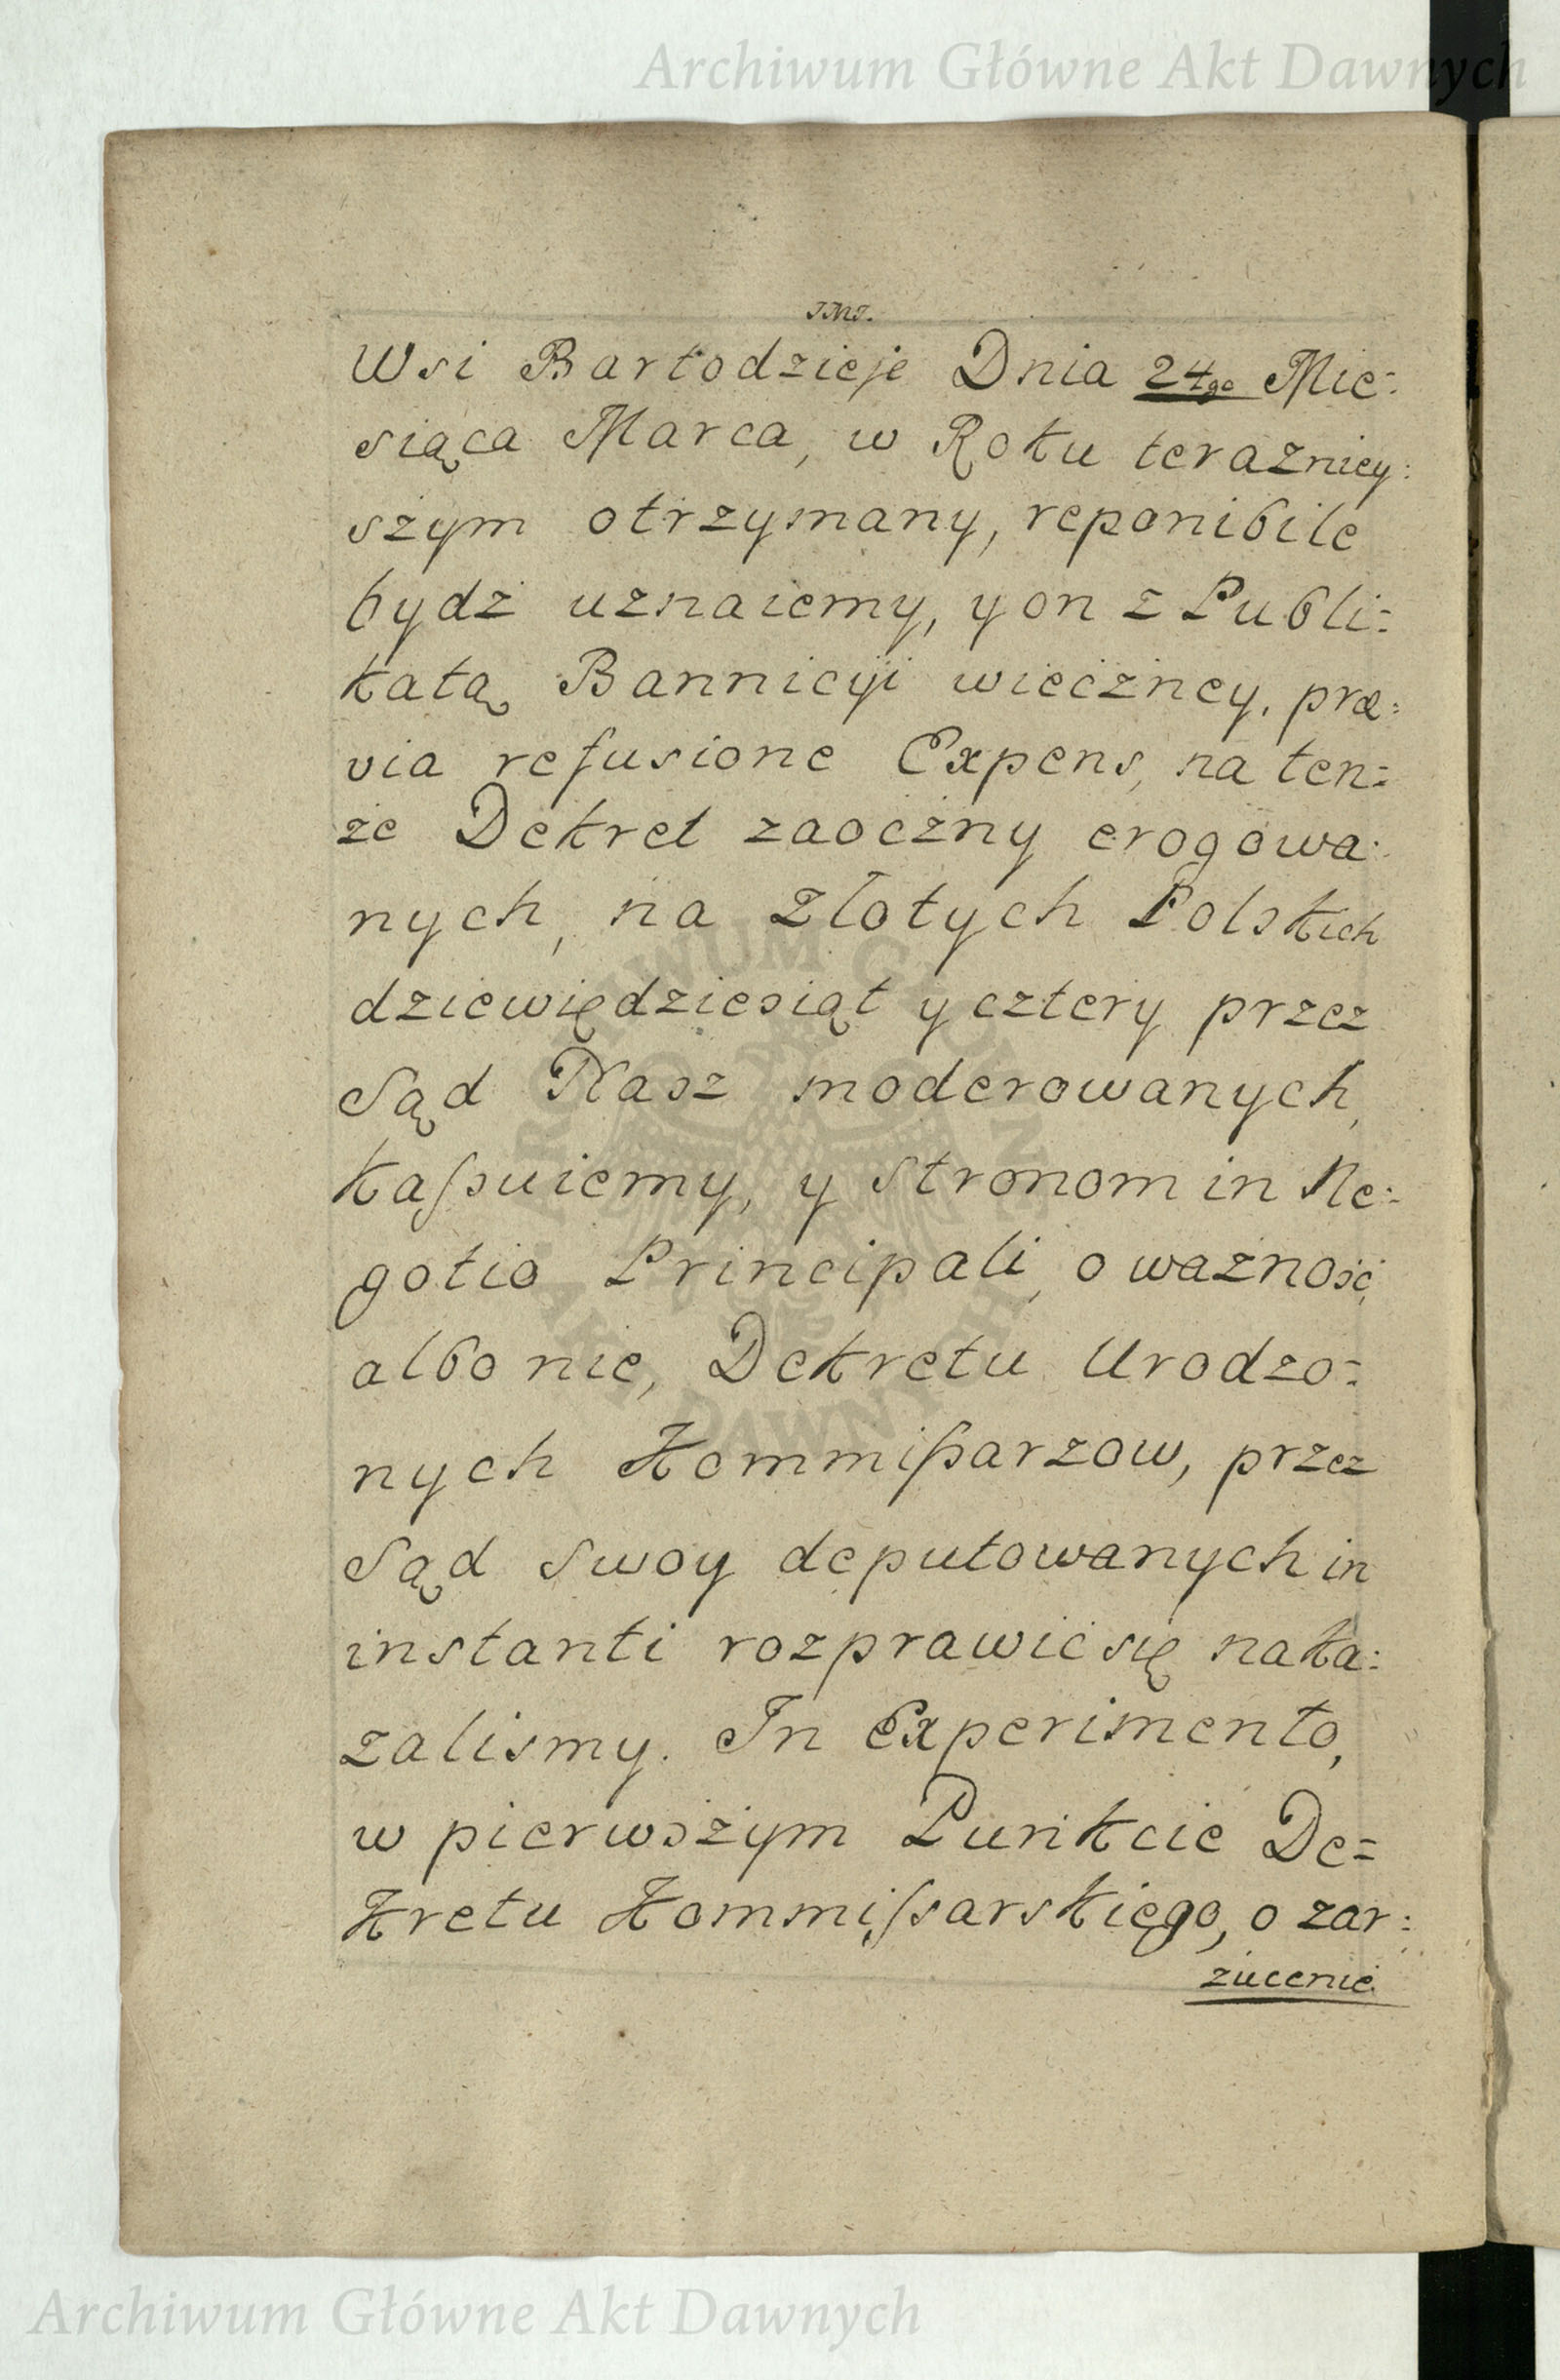 Archiwum Główne Akt Dawnych
JMJ.
Wsi Bartodzieje Dnia 24go Mie:
siąca Marca, w Roku terazniey:
szym otrzymany, reponibile
bydz uznaiemy, y on z Publi:
katą Bannicyi wieczney, præ:
via refusione Expens, na ten:
że Dekret zaoczny erogowa:
nych, na Złotych Polskich
dziewiędziesiąt y cztery przez
Sąd Nasz moderowanych,
kaſsuiemy, y stronom in Ne:
gotio Principali, o ważność
albo nie, Dekretu Urodzo:
nych Kommiſsarzow, przez
Sąd swoy deputowanych in
instanti rozprawić się naka:
zalismy. In Experimento,
w pierwszym Punkcie De=
kretu Kommiſsarskiego, o zar:
zucenie
ARCHIWUM GŁÓWNE
AKT DAWNYCH
Archiwum Główne Akt Dawnych